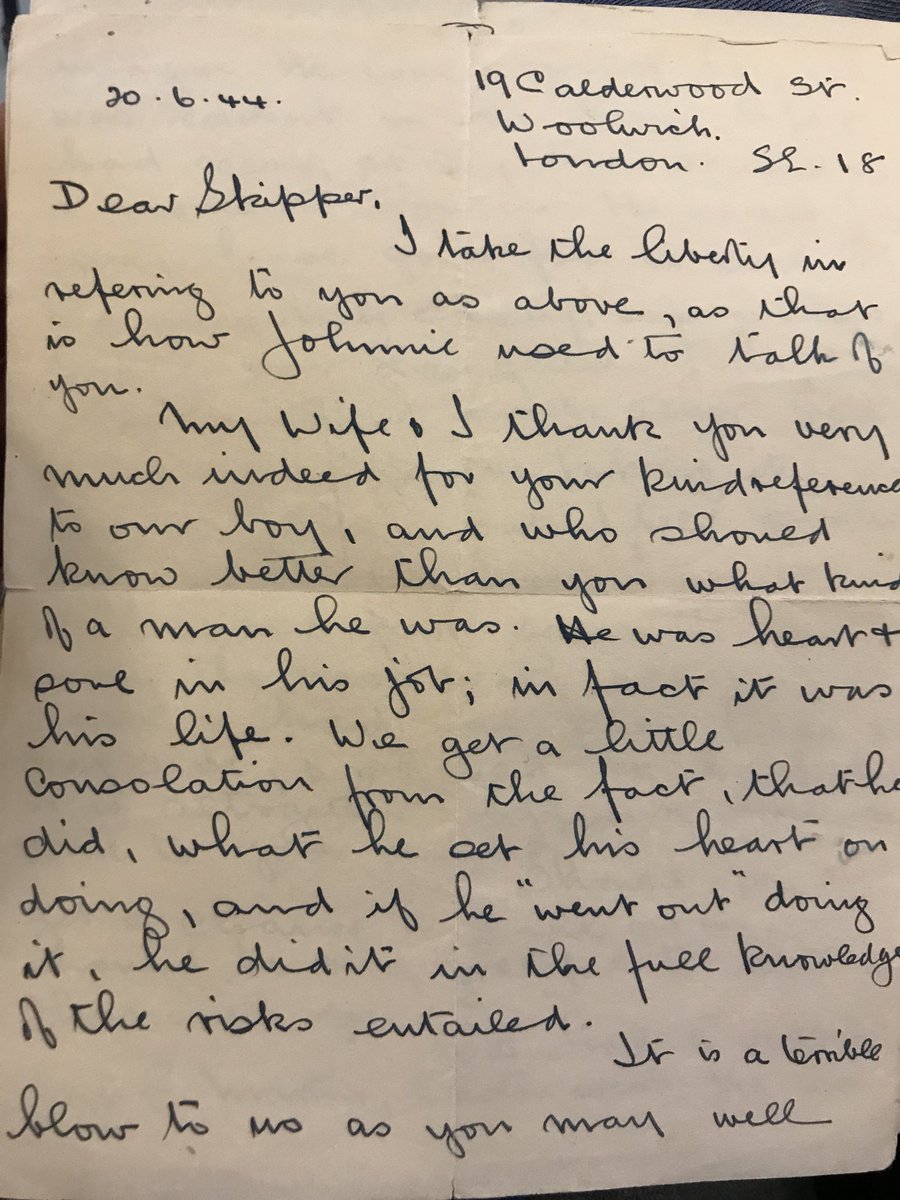 20.6.44.
19 Calderwood St.
Woolwich.
London. SE.18
Dear Skipper,
I take the liberty in
refering to you as above, as that
is how Johnnie used to talk of
you.
My Wife & I thank you very
much indeed for your kind reference
to our boy, and who should
know better than you what kind
of a man he was. He was heart +
soul in his job; in fact it was
his life. We get a little
Consolation from the fact, that he
did, what he set his heart on
doing, and if he "went out" doing
it, he did it in the full knowledge
of the risks entailed.
It is a terrible
blow to us as you may well